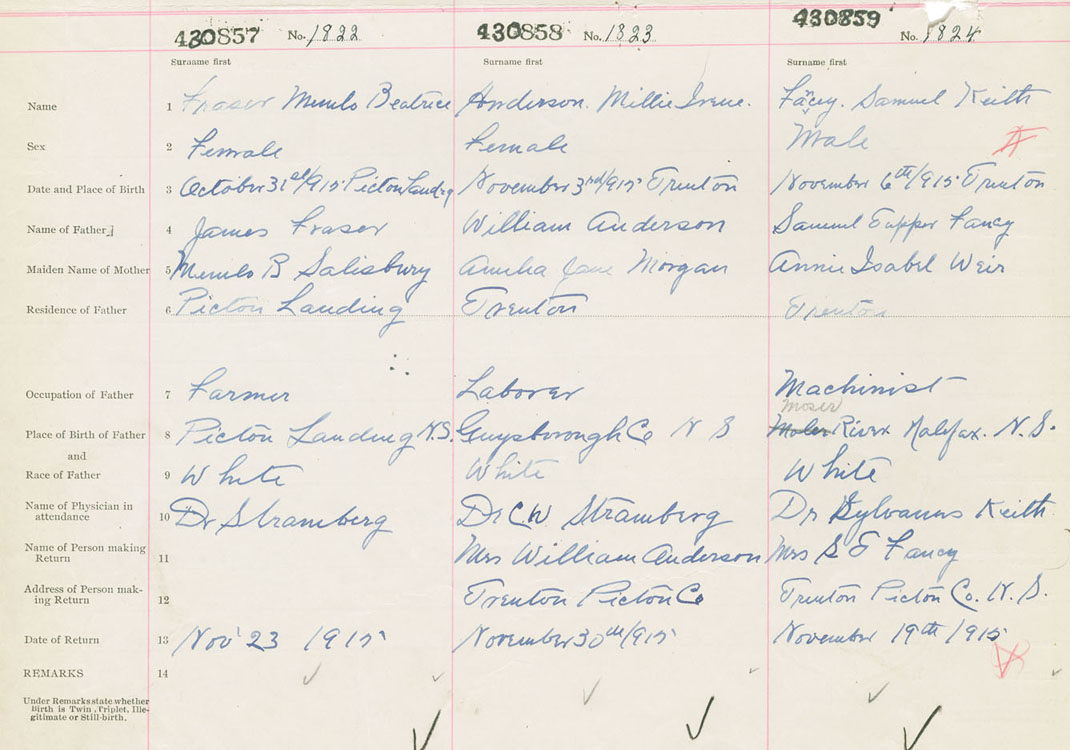 430857 No. 1822 430858 No. 1823 430859 No. 1824
Surname first Surname first Surname first
Name 1 Fraser Beatrice Anderson. Millie Irene. Fancy. Samuel Keith
Sex 2 Female Female Male
Date and Place of Birth 3 October 31st/915 Picton Landing November 3rd/915 Trenton November 6th/915 Trenton
Name of Father 4 James Fraser William Anderson Samuel Tupper Fancy
Maiden Name of Mother 5 B Salisbury Amelia Jane Morgan Annie Isabel Weir
Residence of Father 6 Picton Landing Trenton Trenton
Occupation of Father 7 Farmer Laborer Machinist
Moser
Place of Birth of Father 8 Picton Landing N.S. Guysborough Co N S River Halifax. N.S.
and
Race of Father 9 White White White
Name of Physician in
attendance 10 Dr Stramberg Dr C.W Stramberg Dr Sylvanus Keith
Name of Person making
Return 11 Mrs William Anderson Mrs S T Fancy
Address of Person mak-
ing Return 12 Trenton Picton Co Trenton Picton Co. N.S.
Date of Return 13 Nov 23 1915 November 30th/915 November 19th/1915
REMARKS 14
Under Remarks state whether
Birth is Twin, Triplet, Ille-
gitimate or Still-birth.